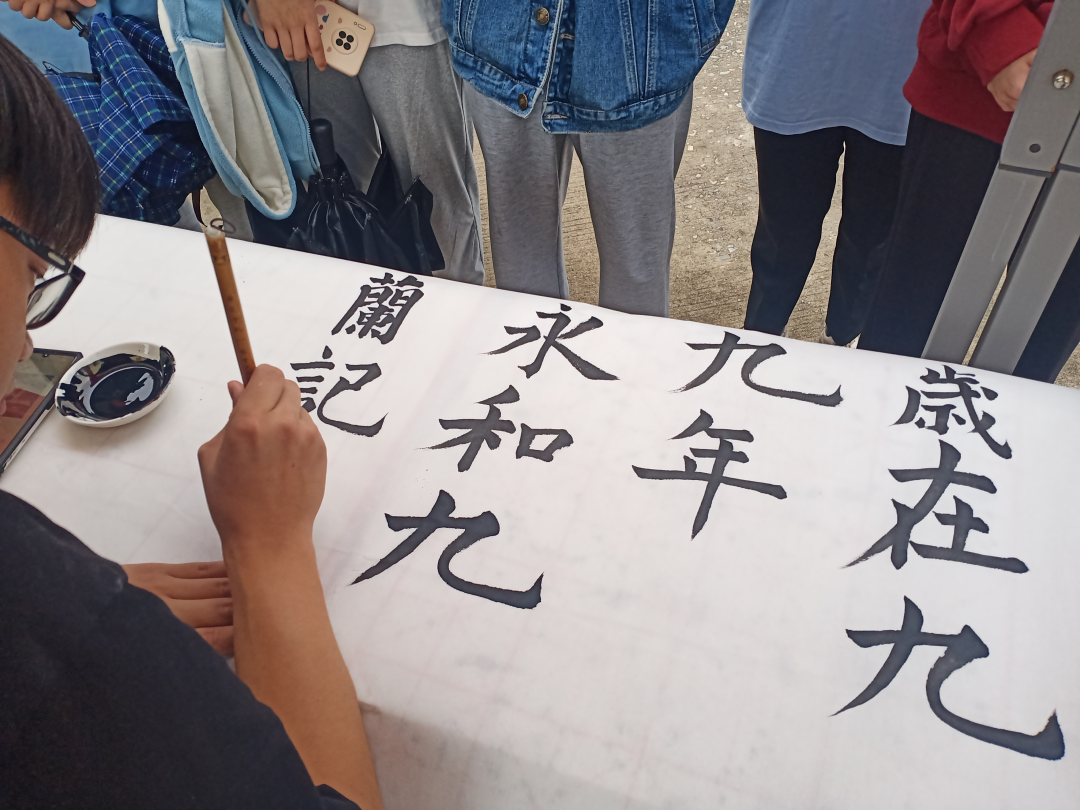 歳在九
九年
永和九
蘭記